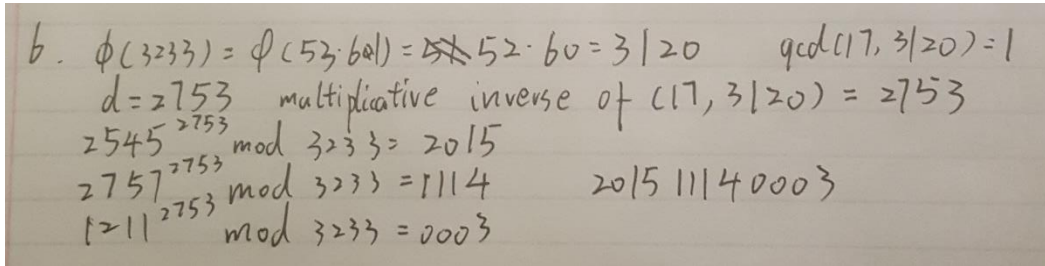 6. φ(3233) = φ(53·61) = 52·60 = 3120 gcd(17, 3120) = 1
d = 2753 multiplicative inverse of (17, 3120) = 2753
2545^2753 mod 3233 = 2015
2757^2753 mod 3233 = 1114 2015 1114 0003
1211^2753 mod 3233 = 0003